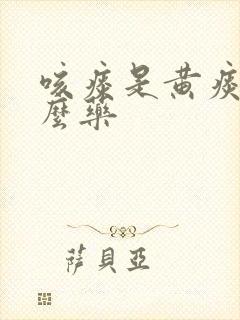 咳痰是黄痰
麼藥
薩貝亞